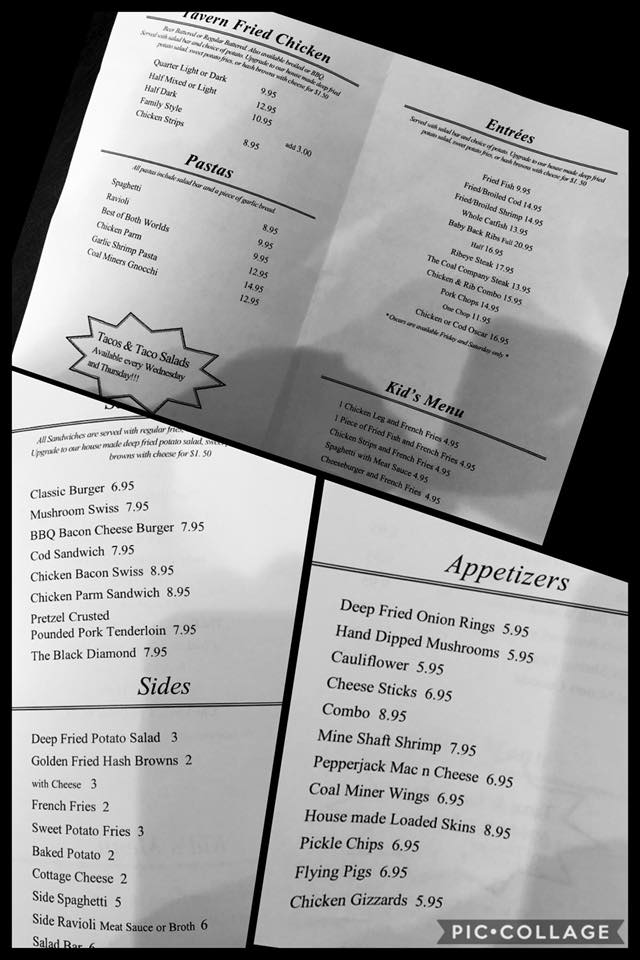 Tavern Fried Chicken
Beer Battered or Regular Battered. Also available broiled or BBQ.
Served with salad bar and choice of potato. Upgrade to our house made deep fried
potato salad, sweet potato fries, or hash browns with cheese for $1.50
Quarter Light or Dark 9.95
Half Mixed or Light 12.95
Half Dark 10.95
Family Style add 3.00
Chicken Strips 8.95
Pastas
All pastas include salad bar and a piece of garlic bread.
Spaghetti 8.95
Ravioli 9.95
Best of Both Worlds 9.95
Chicken Parm 12.95
Garlic Shrimp Pasta 14.95
Coal Miners Gnocchi 12.95
Tacos & Taco Salads
Available every Wednesday
and Thursday!!!
Entrées
Served with salad bar and choice of potato. Upgrade to our house made deep fried
potato salad, sweet potato fries, or hash browns with cheese for $1.50
Fried Fish 9.95
Fried/Broiled Cod 14.95
Fried/Broiled Shrimp 14.95
Whole Catfish 13.95
Baby Back Ribs Full 20.95
Half 16.95
Ribeye Steak 17.95
The Coal Company Steak 13.95
Chicken & Rib Combo 15.95
Pork Chops 14.95
One Chop 11.95
Chicken or Cod Oscar 16.95
*Oscars are available Friday and Saturday only *
Kid's Menu
1 Chicken Leg and French Fries 4.95
1 Piece of Fried Fish and French Fries 4.95
Chicken Strips and French Fries 4.95
Spaghetti with Meat Sauce 4.95
Cheeseburger and French Fries 4.95
All Sandwiches are served with regular fries,
Upgrade to our house made deep fried potato salad,
browns with cheese for $1. 50
Classic Burger 6.95
Mushroom Swiss 7.95
BBQ Bacon Cheese Burger 7.95
Cod Sandwich 7.95
Chicken Bacon Swiss 8.95
Chicken Parm Sandwich 8.95
Pretzel Crusted
Pounded Pork Tenderloin 7.95
The Black Diamond 7.95
Sides
Deep Fried Potato Salad 3
Golden Fried Hash Browns 2
with Cheese 3
French Fries 2
Sweet Potato Fries 3
Baked Potato 2
Cottage Cheese 2
Side Spaghetti 5
Side Ravioli Meat Sauce or Broth 6
Salad Bar 6
Appetizers
Deep Fried Onion Rings 5.95
Hand Dipped Mushrooms 5.95
Cauliflower 5.95
Cheese Sticks 6.95
Combo 8.95
Mine Shaft Shrimp 7.95
Pepperjack Mac n Cheese 6.95
Coal Miner Wings 6.95
House made Loaded Skins 8.95
Pickle Chips 6.95
Flying Pigs 6.95
Chicken Gizzards 5.95
PIC•COLLAGE